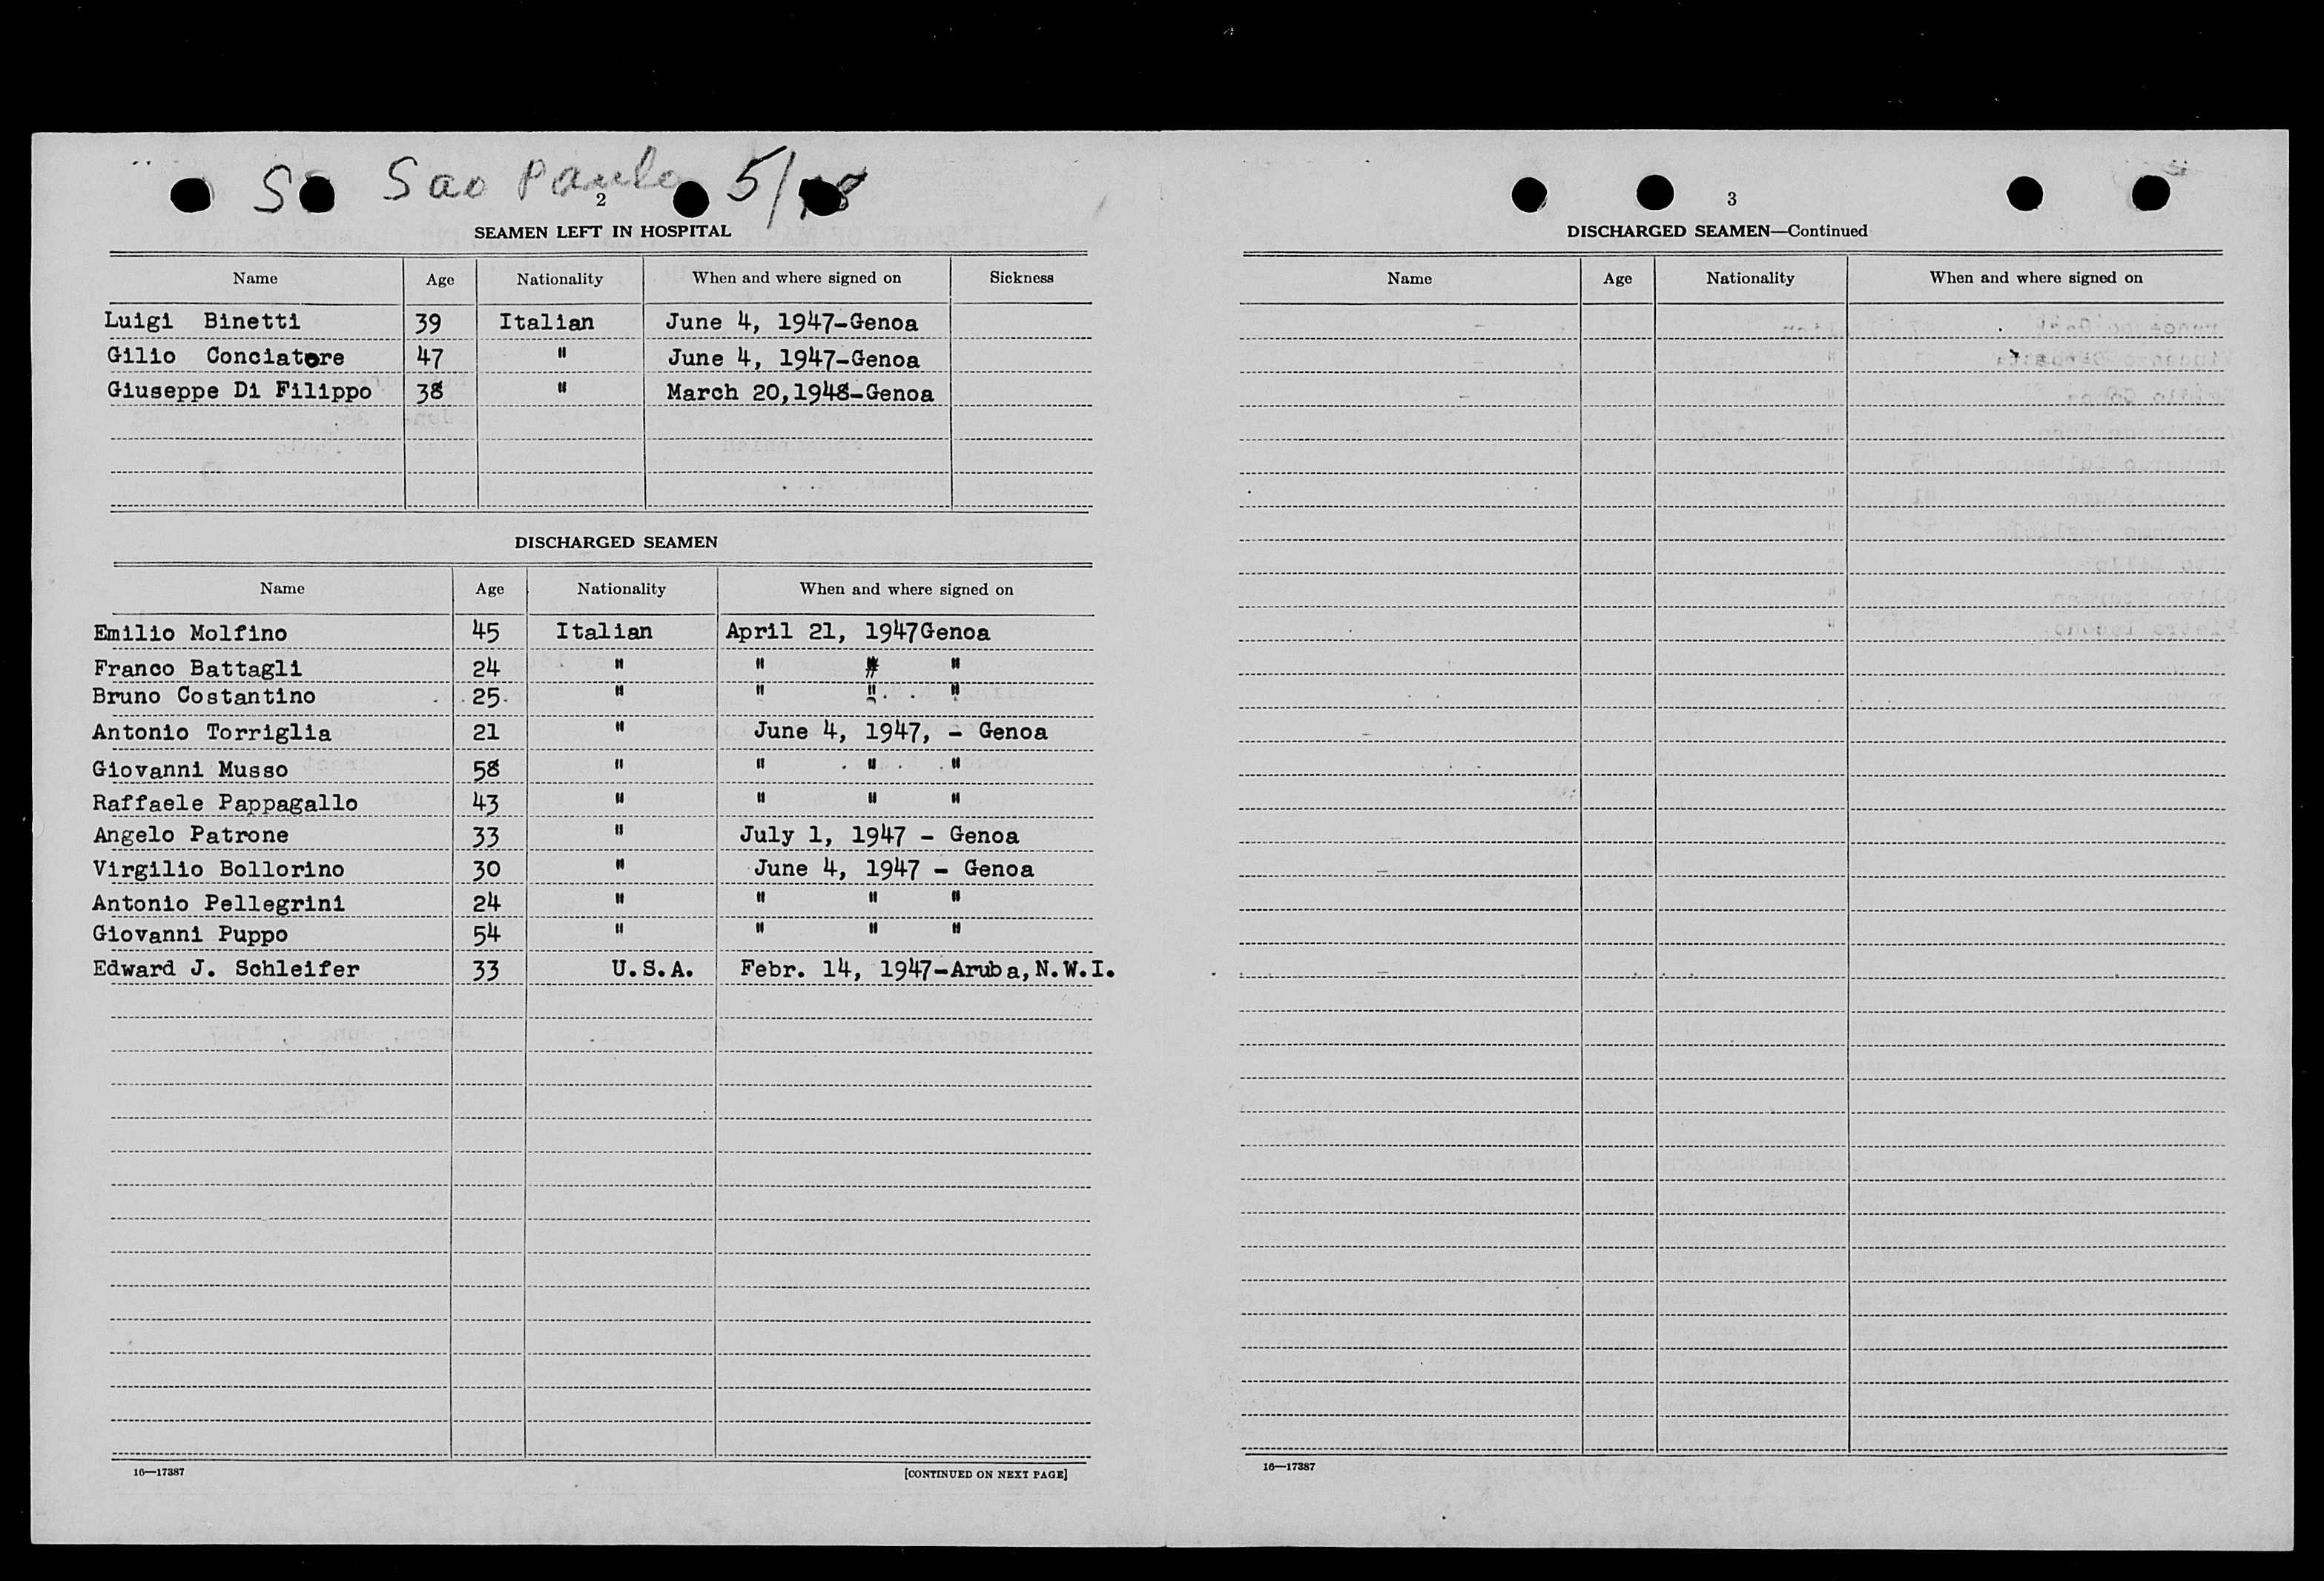 SS Sao Paulo 5/48
2
SEAMEN LEFT IN HOSPITAL
Name Age Nationality When and where signed on Sickness
Luigi Binetti 39 Italian June 4, 1947-Genoa
Gilio Conciatore 47 " June 4, 1947-Genoa
Giuseppe Di Filippo 38 " March 20,1948-Genoa
DISCHARGED SEAMEN
Name Age Nationality When and where signed on
Emilio Molfino 45 Italian April 21, 1947Genoa
Franco Battagli 24 " " " "
Bruno Costantino 25 " " " "
Antonio Torriglia 21 " June 4, 1947, - Genoa
Giovanni Musso 58 " " " "
Raffaele Pappagallo 43 " " " "
Angelo Patrone 33 " July 1, 1947 - Genoa
Virgilio Bollorino 30 " June 4, 1947 - Genoa
Antonio Pellegrini 24 " " " "
Giovanni Puppo 54 " " " "
Edward J. Schleifer 33 U.S.A. Febr. 14, 1947-Aruba, N.W.I.
16—17387 [CONTINUED ON NEXT PAGE]
3
DISCHARGED SEAMEN—Continued
Name Age Nationality When and where signed on
16—17387